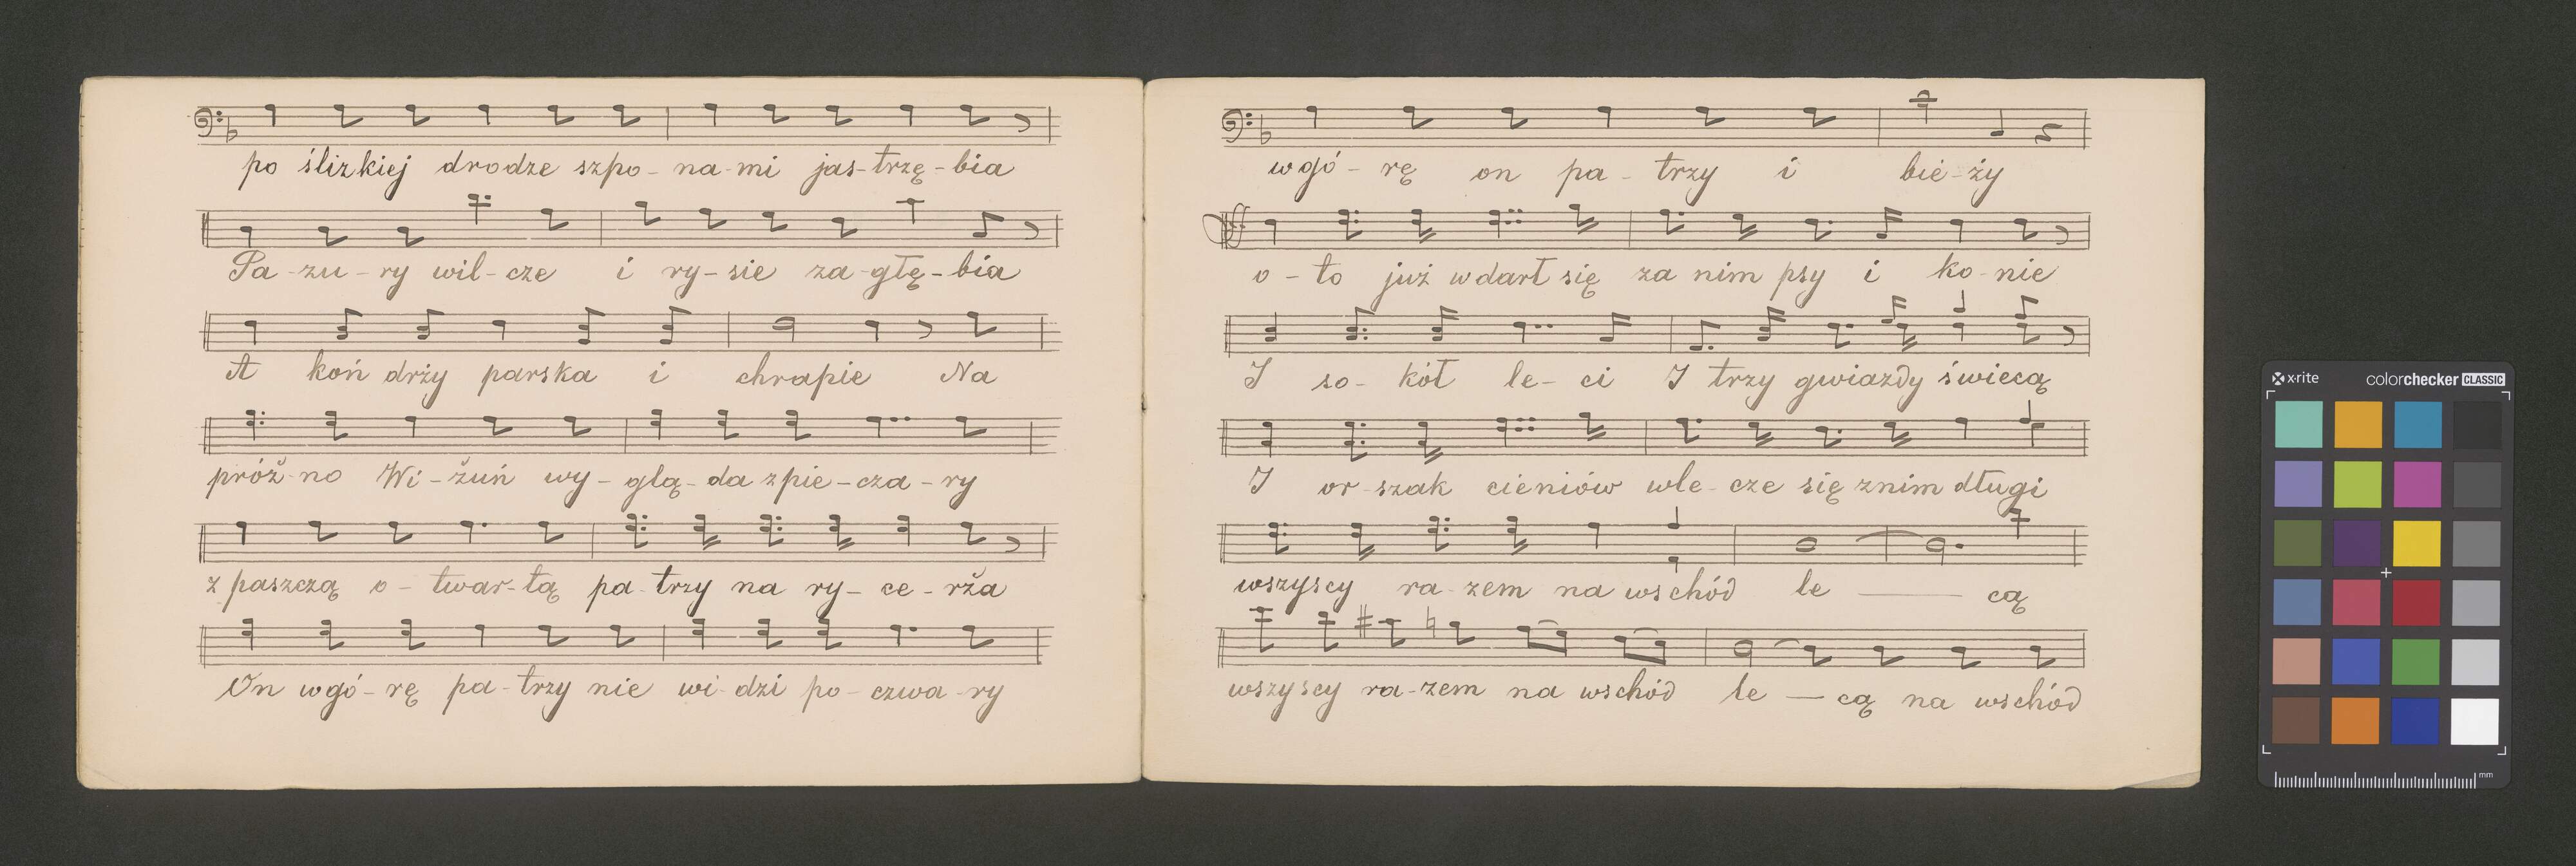 po ślizkiej drodze szpo - na - mi jas - trzę - bia
Pa - zu - ry wil - cze i ry - sie za - głę - bia
A koń drży parska i chrapie Na
próž - no Wi - žuń wy - glą - da z pie - cza - ry
z paszczą o - twar - tą pa - trzy na ry - ce - rža
On wgó - rę pa - trzy nie wi - dzi po - czwa - ry
wgó - rę on pa - trzy i bie - ży
o - to już wdarł się za nim psy i ko - nie
I so - kół le - ci I trzy gwiazdy świecą
I or - szak cieniów wle - cze się znim długi
wszyscy ra - zem na wschód le — cą
wszyscy ra - zem na wschód le — cą na wschód
x-rite colorchecker CLASSIC
mm